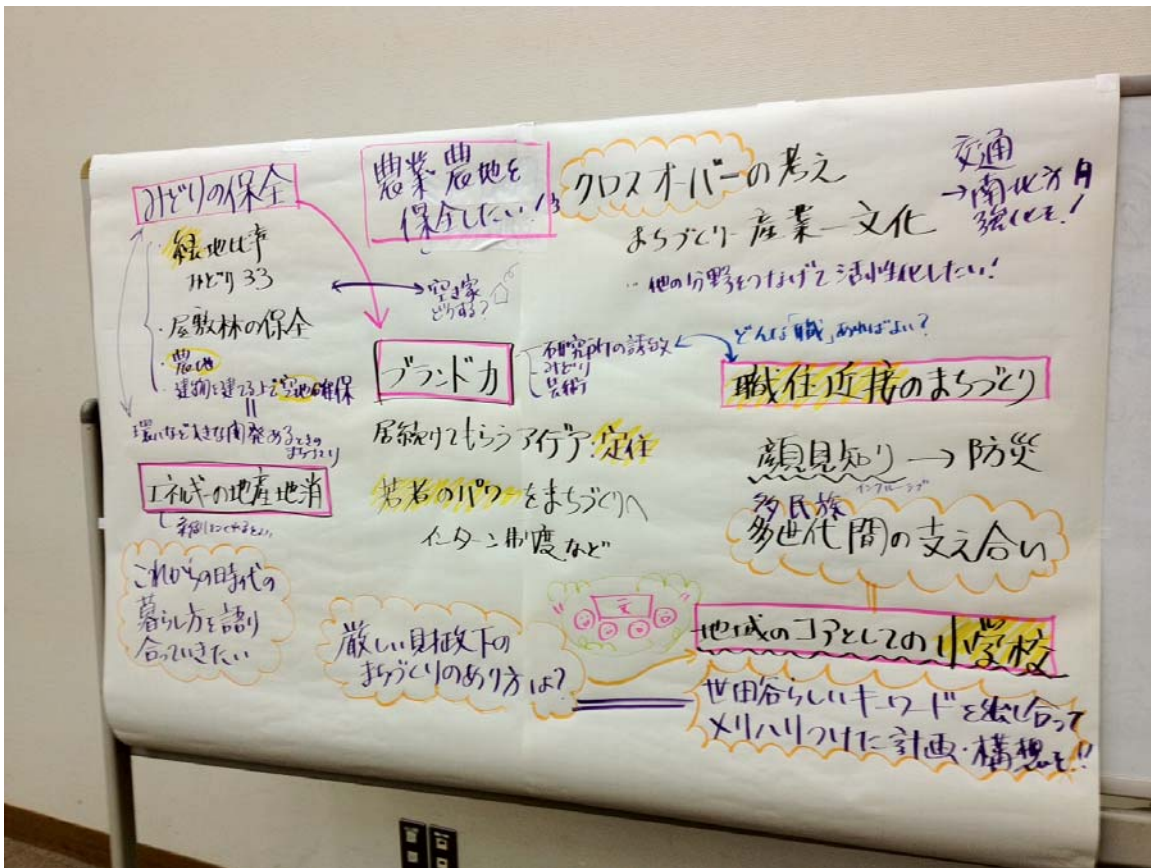 みどりの保全
・緑地比率
みどり33
・屋敷林の保全
・農地
・建物を建てる上で空地の確保
環八など大きな開発あるときの
まちづくり
エネルギーの地産地消
これからの時代の
暮らし方を語り
合っていきたい
農業農地を
保全したい!
空き家
どうする?
ブランド力
研究所の誘致
みどり
芸術
居続けてもらうアイデア 定住
若者のパワーをまちづくりへ
インターン制度など
厳しい財政下の
まちづくりのあり方は?
クロスオーバーの考え
まちづくりー産業ー文化
…他の分野をつなげて活性化したい!
交通
→南北方向
強化を!
どんな「職」あればよい?
職住近接のまちづくり
顔見知り→防災
インクルーシブ
多民族
多世代間の支え合い
文
地域のコアとしての小学校
世田谷らしいキーワードを出し合って
メリハリつけた計画・構想を!!